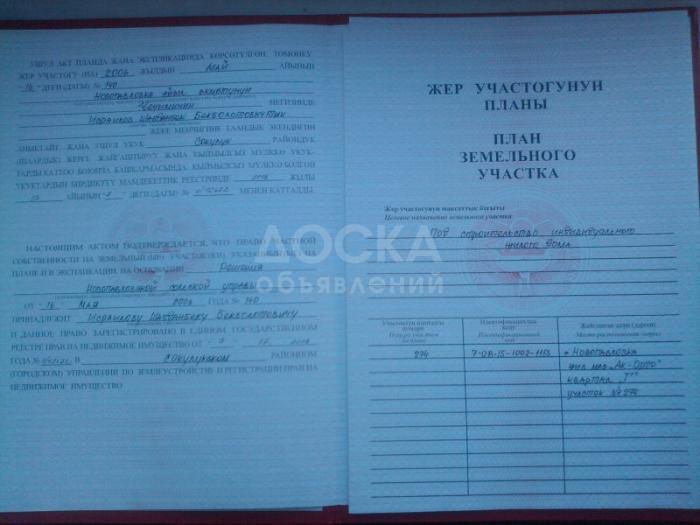 УШУЛ АКТ ПЛАНДА ЖАНА ЭКСПЛИКАЦИЯДА КӨРСӨТҮЛГӨН, ТӨМӨНКҮ
ЖЕР УЧАСТОГУ (НА) 2006 ЖЫЛДЫН Май АЙЫНЫН
"16" ДЕГИ (ДАГЫ) № 140
Новопавловка айыл өкмөтүнүн
НЕГИЗИНДЕ
ЖЕКЕ МЕНЧИГИНЕ ТААНДЫК ЭКЕНДИГИН
АНЫКТАЙТ ЖАНА УШУЛ УКУК Сокулук РАЙОНДУК
(ШААРДЫК) ЖЕРГЕ ЖАЙГАШТЫРУУ ЖАНА КЫЙМЫЛСЫЗ МҮЛККӨ УКУК-
ТАРДЫ КАТТОО БОЮНЧА БАШКАРМАСЫНДА, КЫЙМЫЛСЫЗ МҮЛККӨ БОЛГОН
УКУКТАРДЫН БИРДИКТҮҮ МАМЛЕКЕТТИК РЕЕСТРИНДЕ ЖЫЛЫ
АЙЫНЫН ДЕГИ (ДАГЫ) № МЕНЕН КАТТАЛДЫ.
НАСТОЯЩИМ АКТОМ ПОДТВЕРЖДАЕТСЯ, ЧТО ПРАВО ЧАСТНОЙ
СОБСТВЕННОСТИ НА ЗЕМЕЛЬНЫЙ (ЫЕ) УЧАСТОК(КИ), УКАЗАННЫЙ(ЫЕ) НА
ПЛАНЕ И В ЭКСПЛИКАЦИИ НА ОСНОВАНИИ Решения
Новопавловской сельской управы
ОТ "16" мая 2006 ГОДА № 140
ПРИНАДЛЕЖИТ
И ДАННОЕ ПРАВО ЗАРЕГИСТРИРОВАНО В ЕДИНОМ ГОСУДАРСТВЕННОМ
РЕЕСТРЕ ПРАВ НА НЕДВИЖИМОЕ ИМУЩЕСТВО ОТ
ГОДА № В Сокулукском РАЙОННОМ
(ГОРОДСКОМ) УПРАВЛЕНИИ ПО ЗЕМЛЕУСТРОЙСТВУ И РЕГИСТРАЦИИ ПРАВ НА
НЕДВИЖИМОЕ ИМУЩЕСТВО
ЖЕР УЧАСТОГУНУН
ПЛАНЫ
ПЛАН
ЗЕМЕЛЬНОГО
УЧАСТКА
Жер участогунун максаттык багыты
Целевое назначение земельного участка
Под строительство индивидуального
жилого дома
Участоктун пландагы
номери
Номер участка
на плане
Идентификациялык
коду
Идентификационный
код
Жайгашкан жери (дареги)
Место расположения (адрес)
274
7-08-15-1002-1153
с Новопавловка
жил мас „Ак-Орго"
квартал „Г"
участок № 274
ДОСКА
объявлений